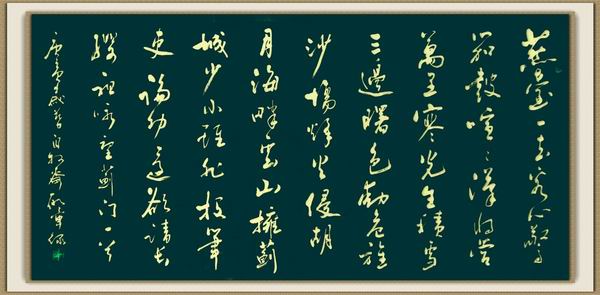 燕臺一去客心驚
笳鼓喧喧漢將營
萬里寒光生積雪
三邊曙色動危旌
沙場烽火侵胡
月海畔雲山擁薊
城少小雖非投筆
吏論功還欲請長
纓祖詠望薊門一首
庚寅